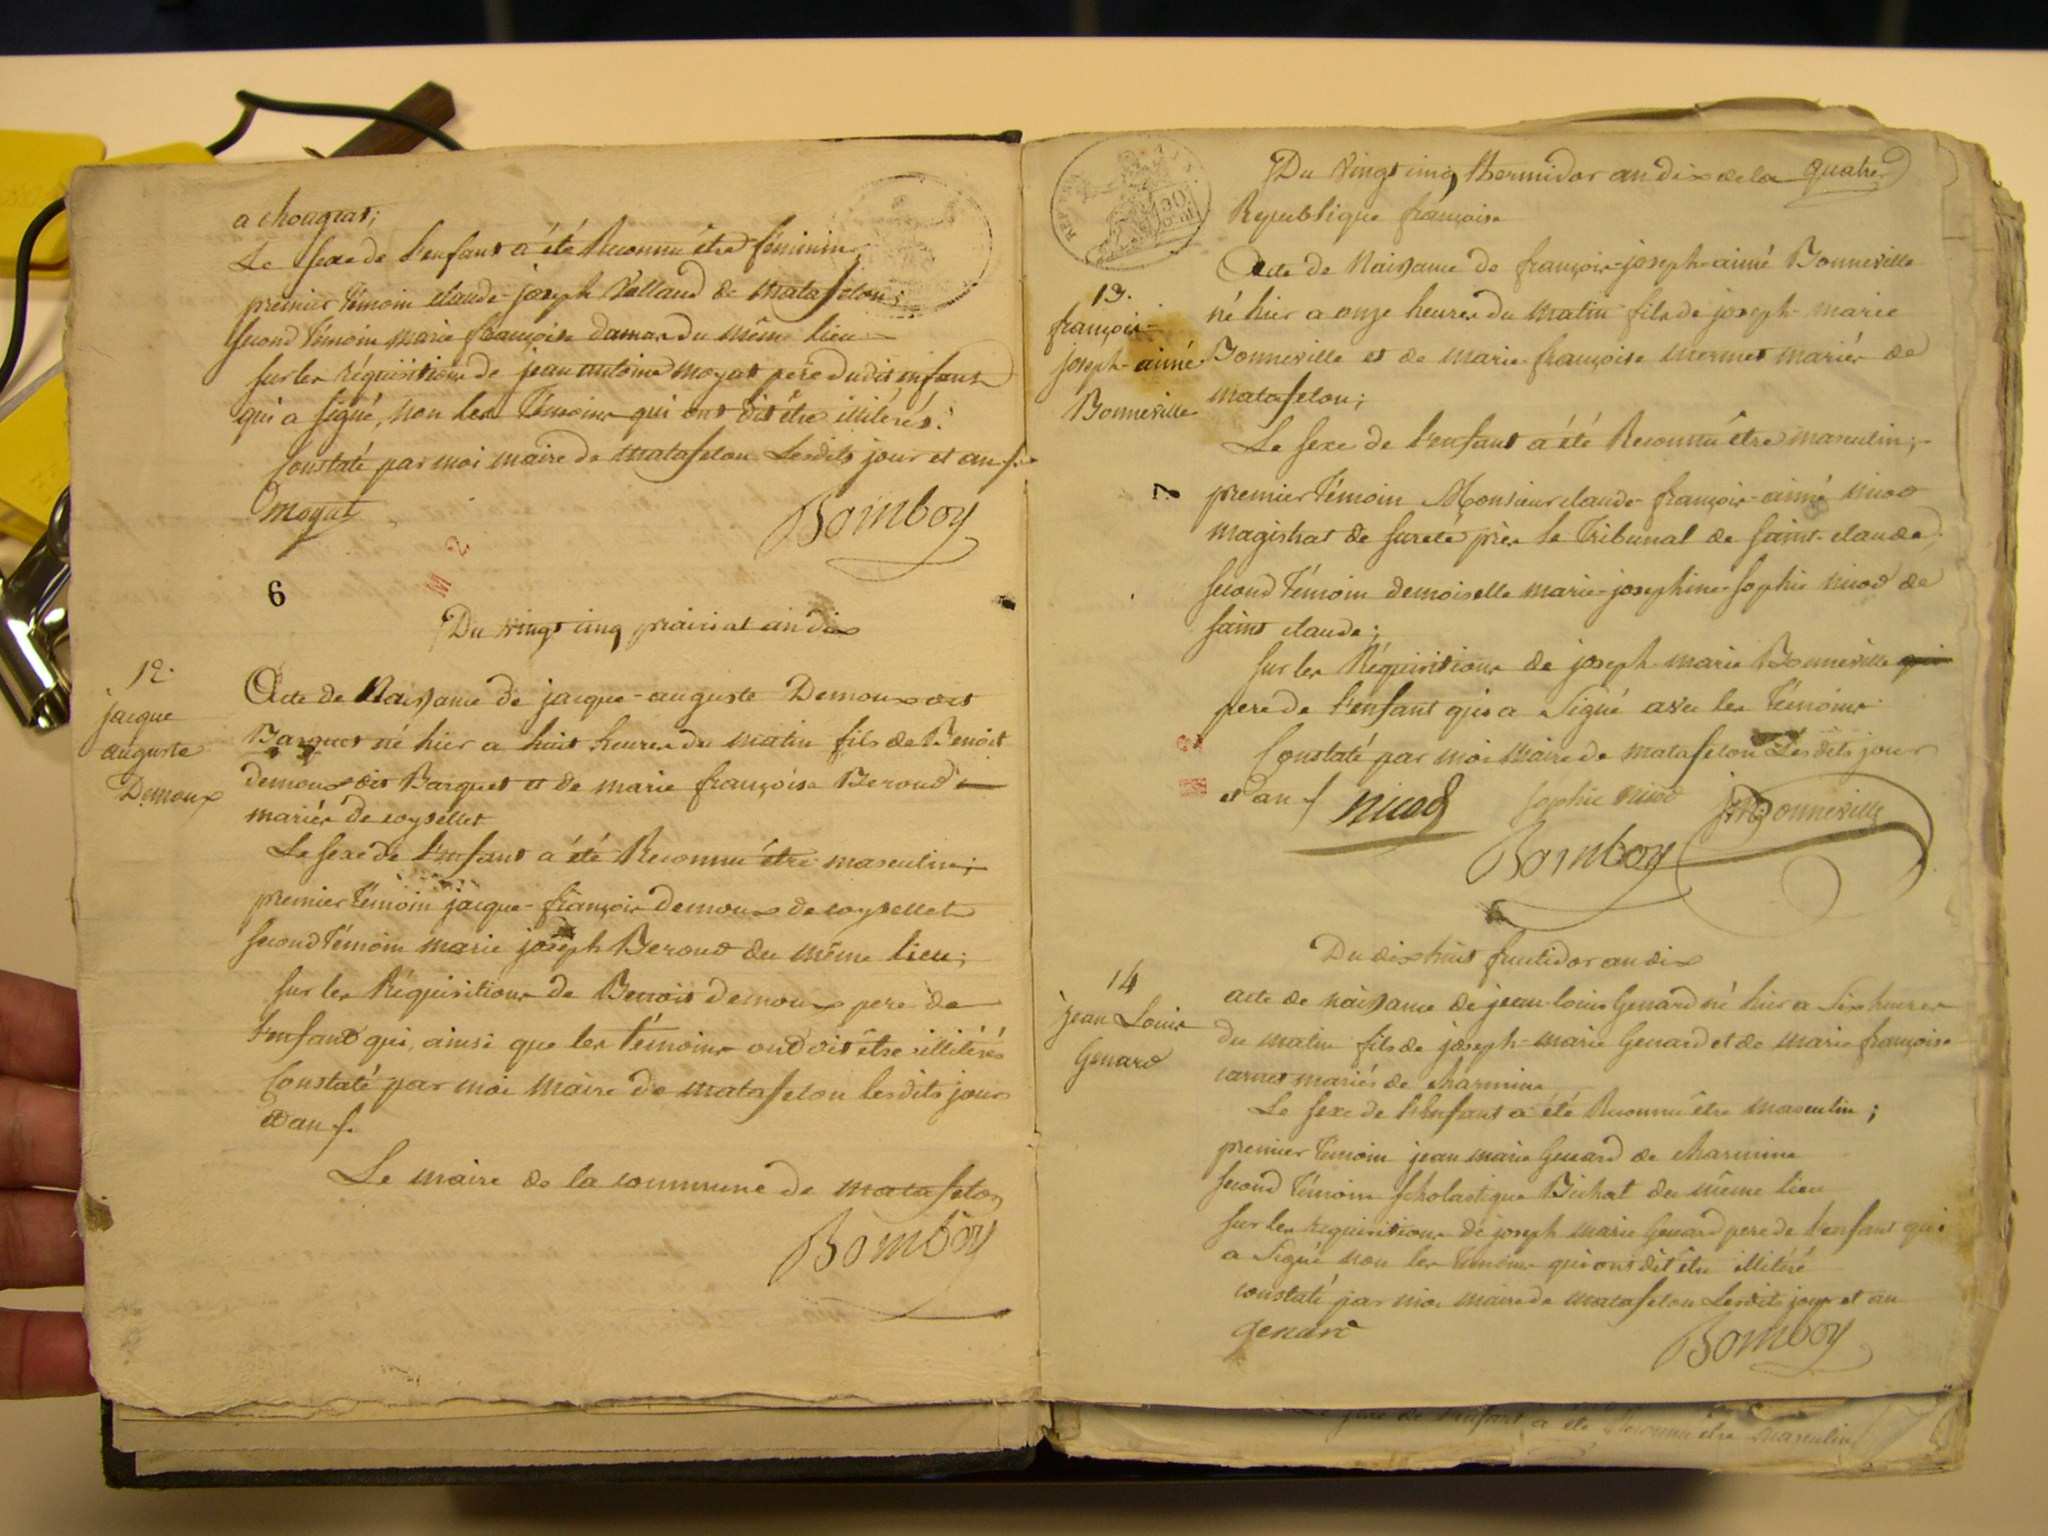 a chougeat;
Le sexe de l'enfant a été Reconnu être féminin
premier témoin claude-joseph Vallaud de matafelon;
second témoin marie françoise damas du même lieu
sur les réquisitions de jean antoine moyat père dudit enfant
qui a signé, non les Témoins qui ont dit être illitérés:
Constaté par moi maire de matafelon Lesdits jour et an
moyat Bomboy
6
Du vingt cinq prairial an dix
12.
jacque
auguste
Demoux
Acte de Naissance de jacque-auguste Demoux dit
Barquet né hier a huit heures du matin fils de Benoit
demoux dit Barquet et de marie françoise Beroud
mariés de coysellet
Le sexe de l'enfant a été Reconnu être masculin;
premier témoin jacque-françois demoux de coysellet
second témoin marie joseph Beroud du même lieu;
sur les Réquisitions de Benoit demoux pere de
l'enfant qui, ainsi que les témoins ont dit être illitérés
Constaté par moi maire de matafelon lesdits jour
et an
Le maire de la commune de matafelon
Bomboy
REP.
30
Du vingt cinq thermidor an dix de la quatre
Republique françoise
13.
françois-
joseph-aimé
Bonneville
Acte de Naissance de françois-joseph-aimé Bonneville
né hier a onze heures du matin fils de joseph-marie
Bonneville et de marie-françoise mermet mariés de
matafelon;
Le sexe de l'enfant a été Reconnu être masculin;
premier témoin Monsieur claude-françois-aimé nicod
magistrat de sureté près le Tribunal de saint-claude;
second témoin demoiselle marie-josephine-sophie nicod de
saint claude;
sur les Réquisitions de joseph marie Bonneville qui
pere de l'enfant qui a signé avec les témoins
Constaté par moi maire de matafelon Lesdits jour
et an nicod sophie nicod jmBonneville
Bomboy
Du dix huit fructidor an dix
14
jean Louis
Genard
acte de naissance de jean-louis Genard né hier a six heures
du matin fils de joseph-marie Genard et de marie françoise
carret mariés de charmine
Le sexe de l'enfant a été Reconnu être masculin;
premier témoin jean marie Genard de charmine
second témoin scholastique Bichat du même lieu
sur les requisitions de joseph marie Genard pere de l'enfant qui
a signé non les témoins qui ont dit être illitéré
constaté par moi maire de matafelon Lesdits jour et an
genard Bomboy
sexe de l'enfant a été Reconnu être masculin